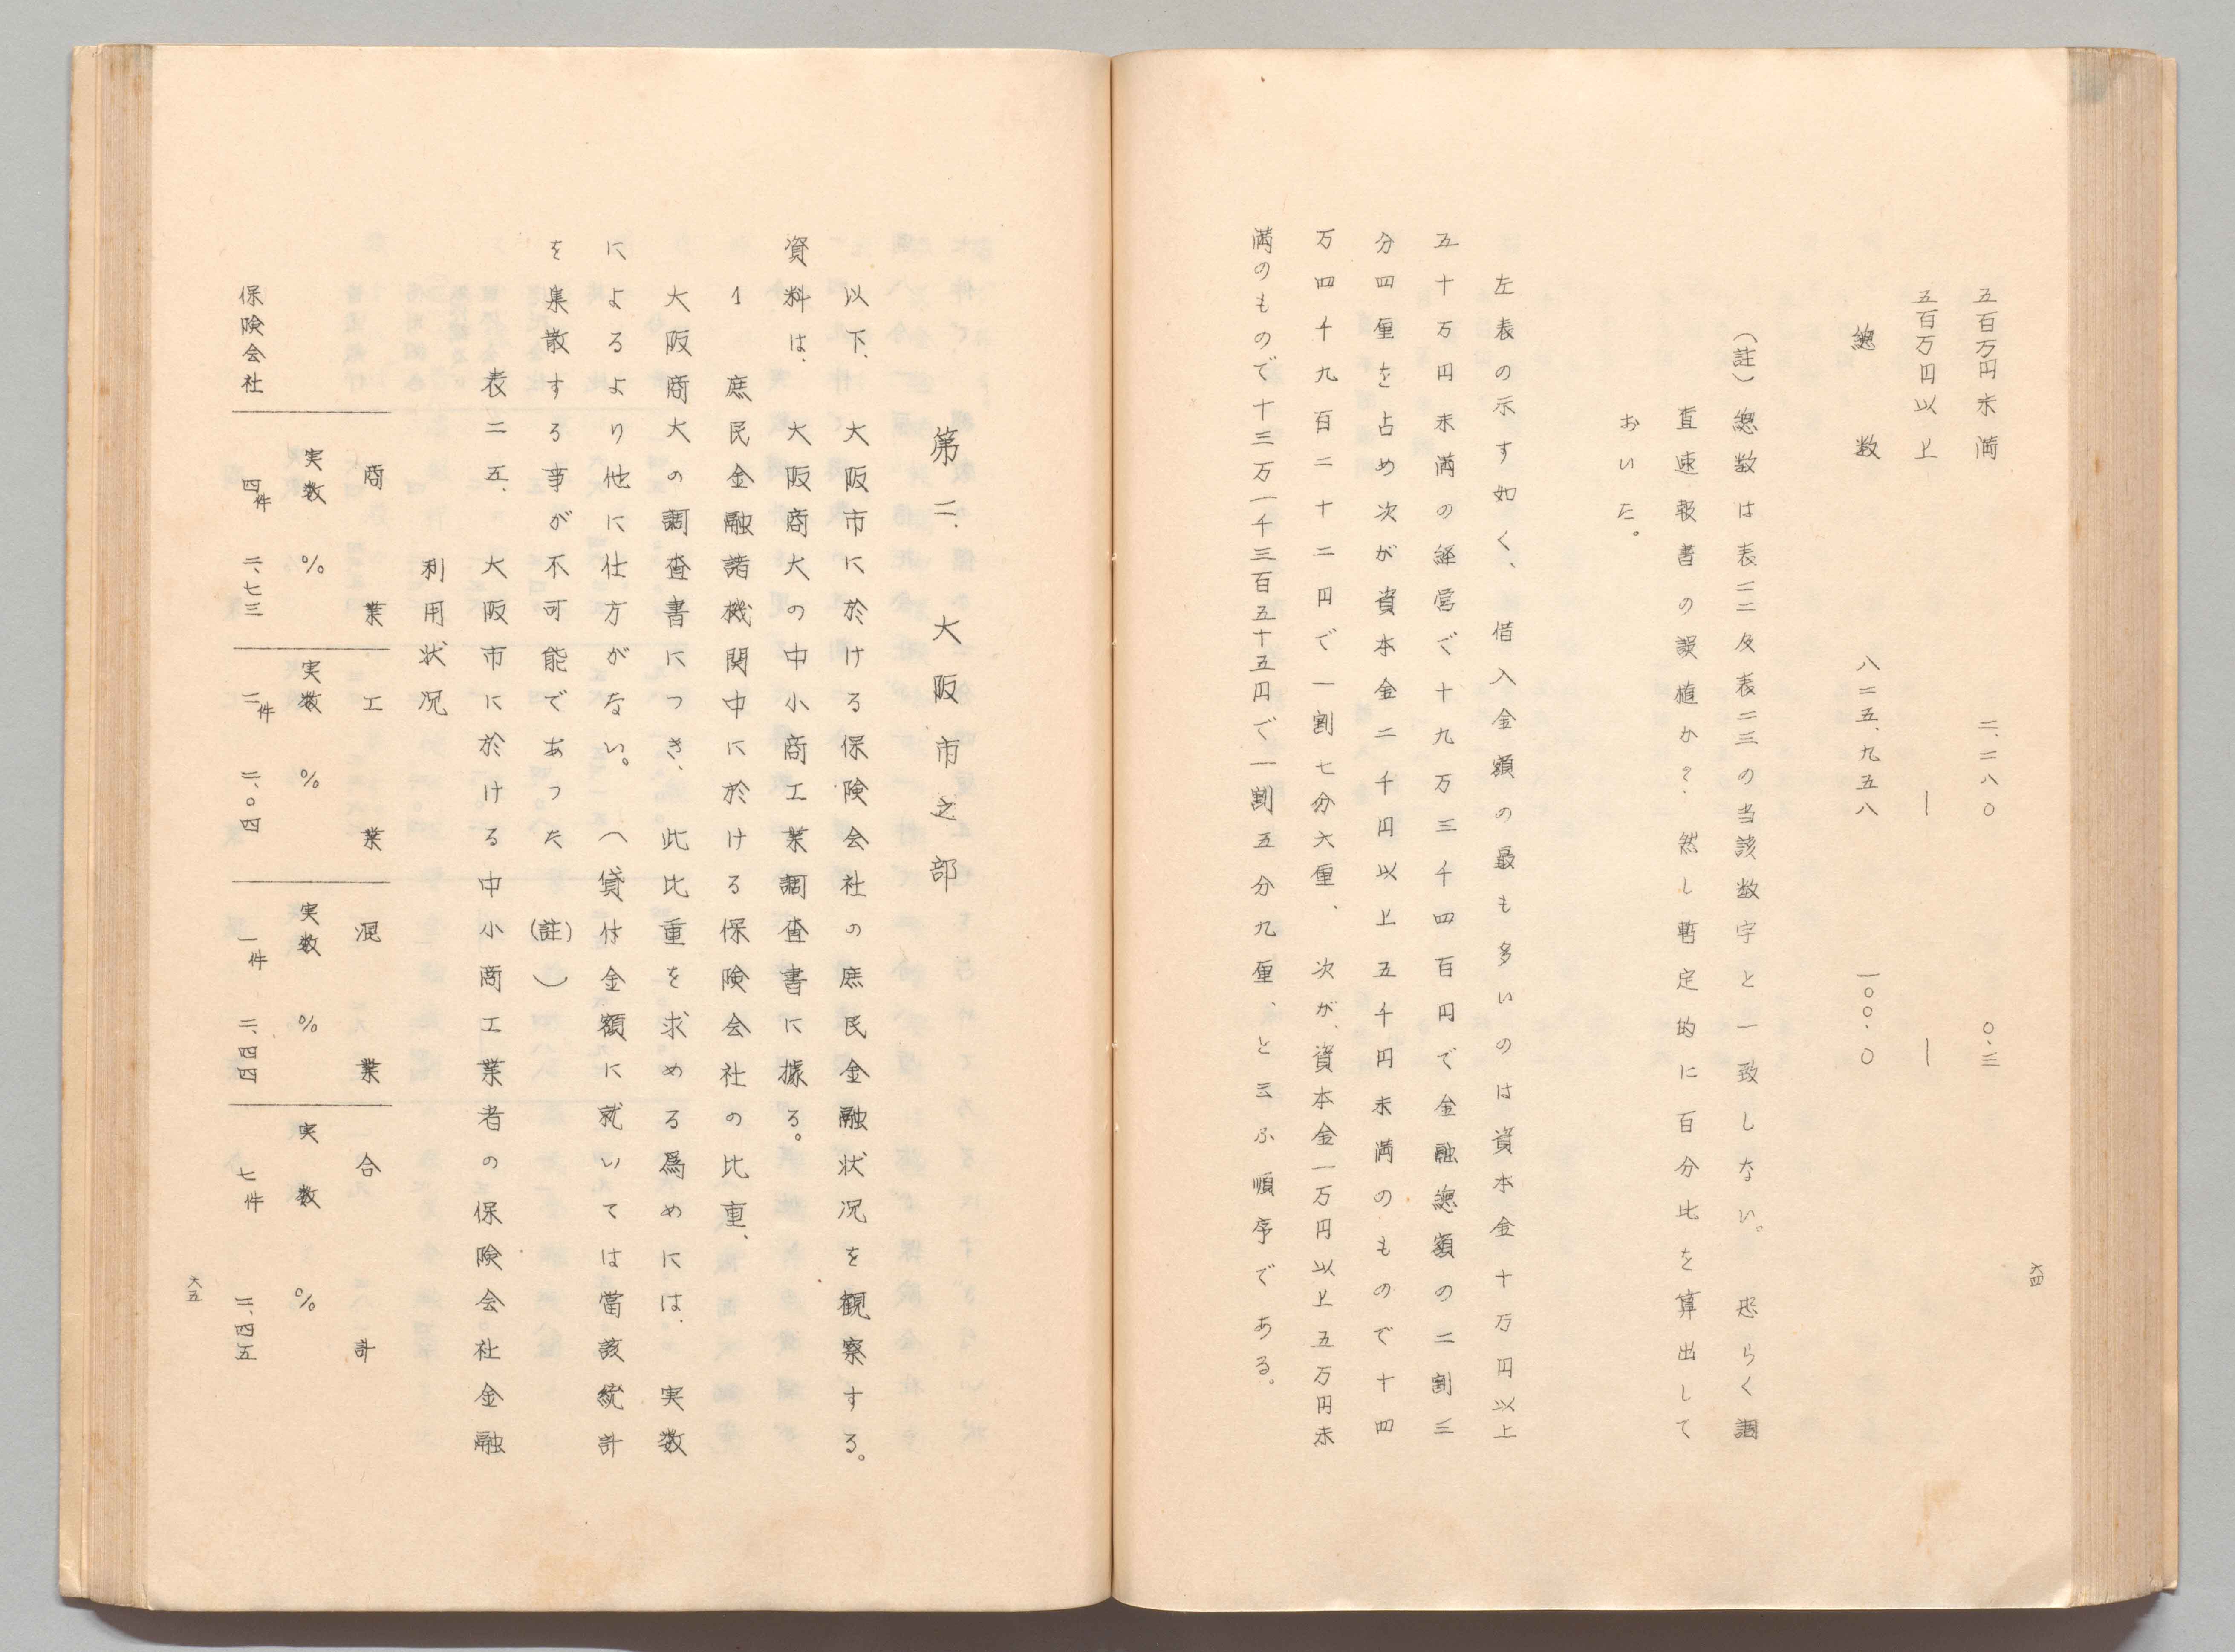 五百万円未満　二、二八〇　〇.三
五百万円以上　―　―
總数　八二五、九五八　一〇〇.〇
(註)總数は表二二及表二三の当該数字と一致しない。恐らく調
査速報書の誤植か?然し暫定的に百分比を算出して
おいた。
左表の示す如く、借入金額の最も多いのは資本金十万円以上
五十万円未満の経営で十九万三千四百円で金融總額の二割三
分四厘を占め次が資本金二千円以上五千円未満のもので十四
万四千九百二十二円で一割七分六厘、次が、資本金一万円以上五万円未
満のもので十三万一千三百五十五円で一割五分九厘、と云ふ順序である。
六四
第三、大阪市之部
以下、大阪市に於ける保険会社の庶民金融状况を観察する。
資料は、大阪商大の中小商工業調査書に據る。
1 庶民金融諸機関中に於ける保険会社の比重、
大阪商大の調査書につき、此比重を求める為めには、実数
によるより他に仕方がない。(貸付金額に就いては當該統計
を集散する事が不可能であった(註))
表二五、大阪市に於ける中小商工業者の保険会社金融
利用状况
商業　工業　混業　合計
実数　%　実数　%　実数　%　実数　%
保険会社　四件　二、七三　二件　二、〇四　一件　二、四四　七件　二、四五
六五